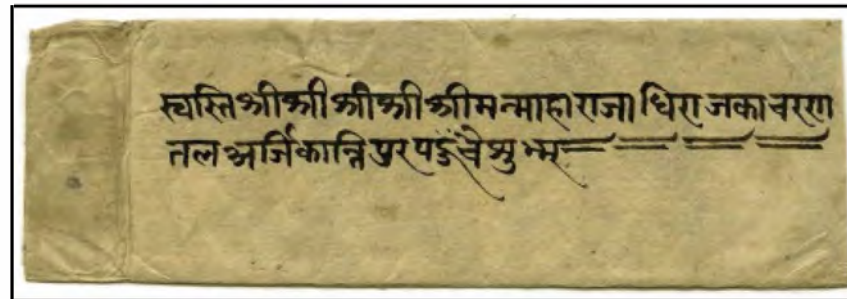 स्वस्ति श्री श्री श्री श्री श्री मन्माहाराजाधिराजका चरण
तल अर्जि कान्तिपुर पहुंचै शुभ्म्